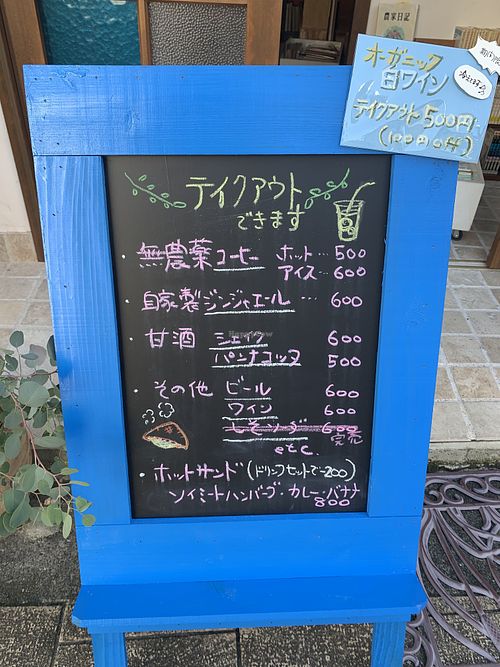 農家日記
オーガニック
白ワイン
テイクアウト500円
(100円off)
テイクアウト
できます
・無農薬コーヒー ホット…500
アイス…600
・自家製ジンジャエール … 600
・甘酒 シェイク 600
パンナコッタ 500
・その他 ビール 600
ワイン 600
しそソーダ 600
完売
etc.
・ホットサンド(ドリンクセットで-200)
ソイミートハンバーグ・カレー・バナナ
800
HappyCow